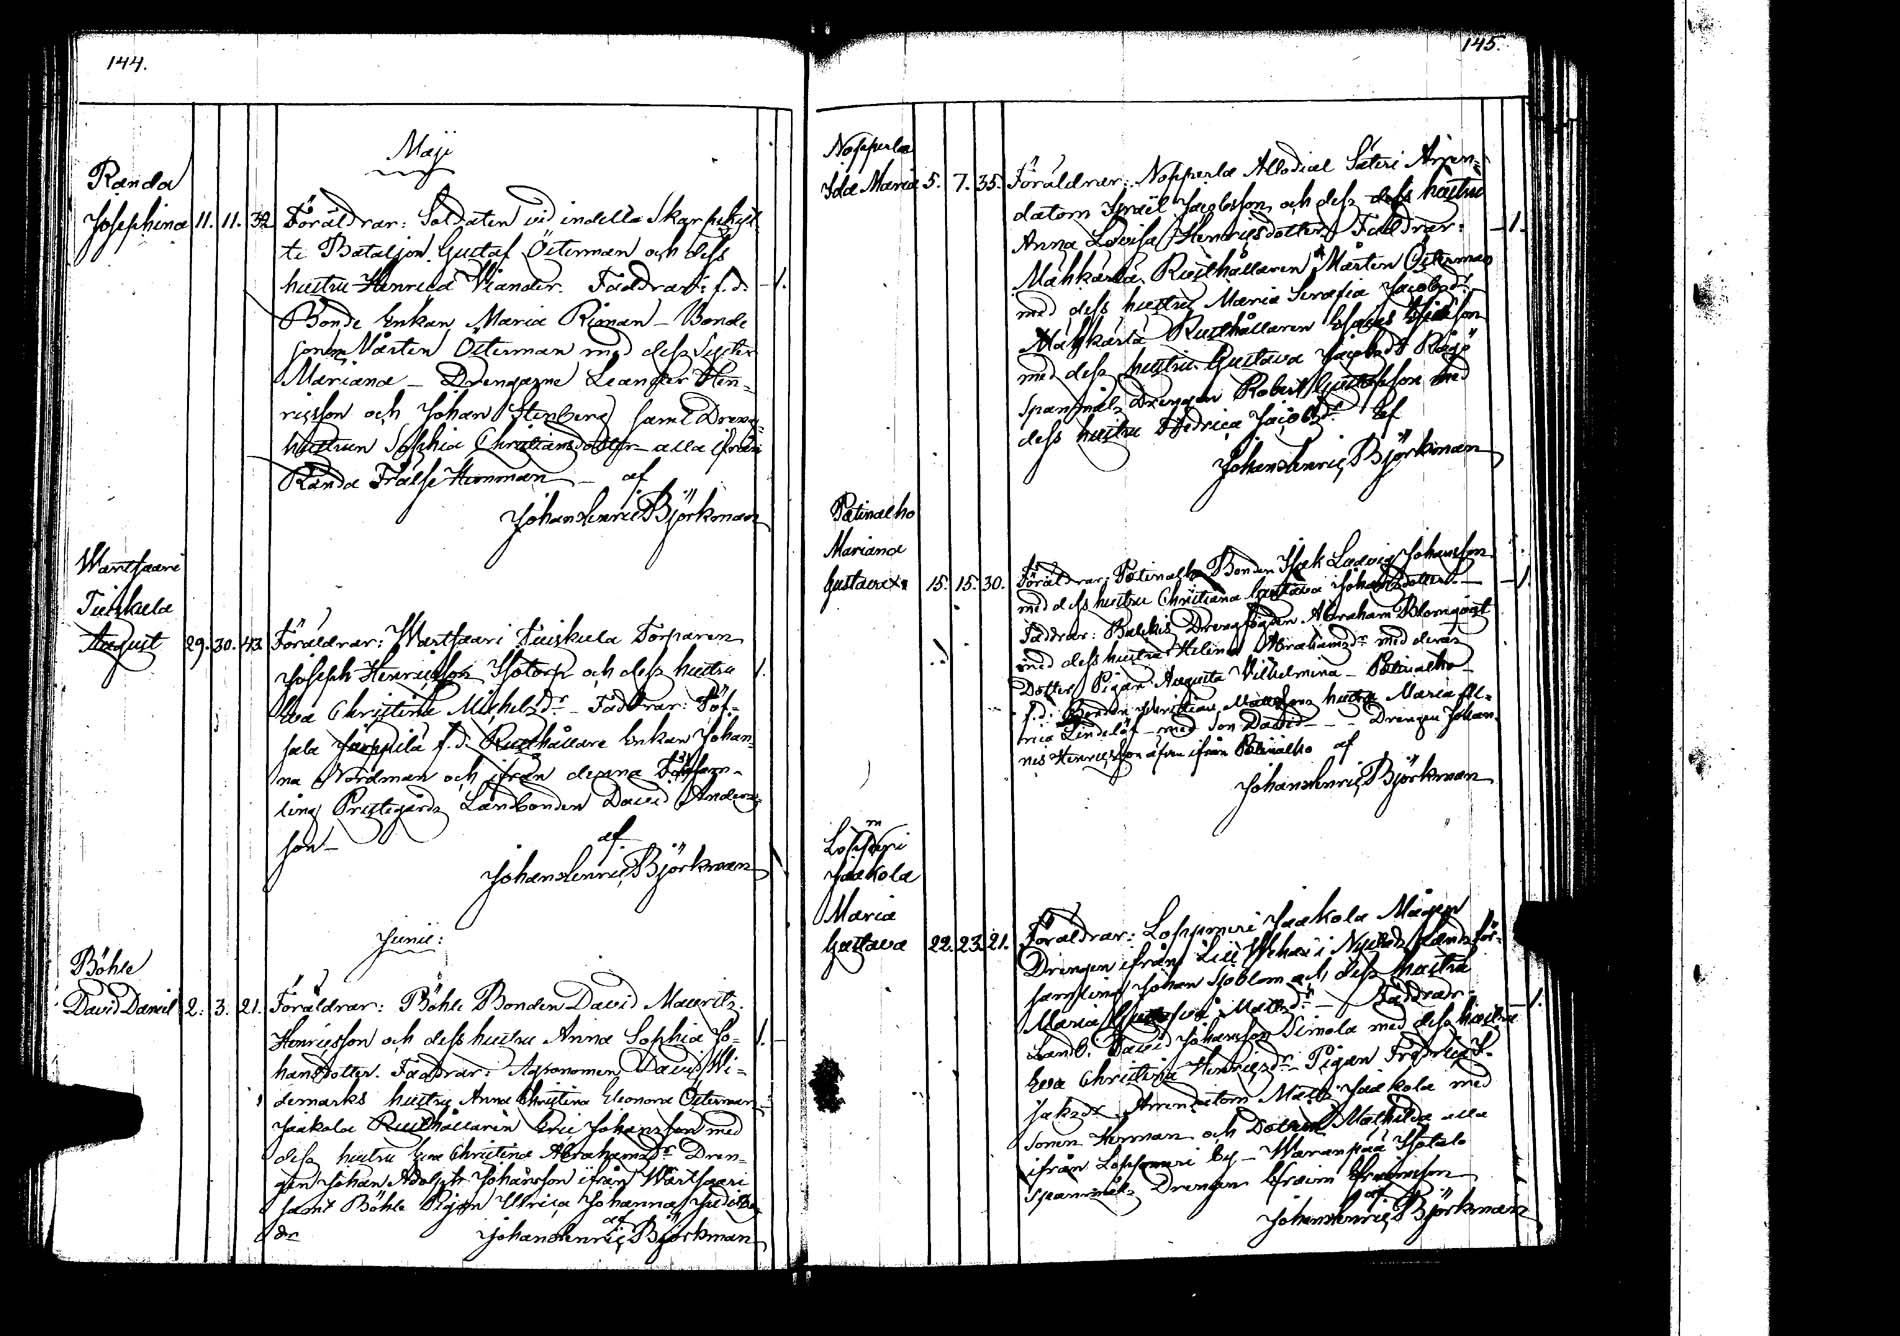 144.
Maji
Randa
Josephina 11. 11. 32 Föräldrar: Soldaten vid indelta Skarpskyt-
te Bataljon Gustaf Österman och dess
hustru Henrica Viander. Faddrar: f.d. 1.
Bonde Enkan Maria Riman – Bonde
sonen Mårten Österman med dess Syster
Mariana – Drengarne Leander Hen-
ricsson och Johan Stenberg samt Dreng-
hustrun Sophia Christiansdotter – alla ifrån
Randa Frälse Hemman – af
Johan Henric Björkman
Wartsaari
Tuiskula
August 29. 30. 43. Föräldrar: Wartsaari Tuiskula Torparen
Joseph Henricsson Isotorp och dess hustru 1.
Eva Christina Michelsdr – Faddrar: Töf-
sala Järppilä f.d. Rusthållare Enkan Johan-
na Nordman och ifrån denna Församm-
ling Prestegårds Landbonden David Anders-
son –
af
Johan Henric Björkman
Junii:
Böhle
David Daniel 2. 3. 21. Föräldrar: Böhle Bonden David Mauritz
Henricsson och dess hustru Anna Sophia Jo- 1.
hansdotter. Faddrar: Agronomen David Wi-
demarks hustru Anna Christina Eleonora Österman
Jaakola Rusthållaren Eric Johansson med
dess hustru Eva Christina Abrahamsdr Dren-
gen Johan Adolph Johansson ifrån Wartsaari
samt Böhle Pigan Ulrica Johanna
dr af
Johan Henric Björkman
145.
Nopperla
Ida Maria 5. 7. 35. Föräldrar: Nopperla Allodial Säteri Arren-
datorn Israël Jacobsson och dess hustru
Anna Lovisa Henricsdotter Faddrar: 1.
Mahkarla Rusthållaren Mårten Österman
med dess hustru Maria Serafia Jacobsdr
Mahkarla Rusthållaren Esaias
med dess hustru Gustava Jacobsdr
Spanmåls Drengen Robert Gustafsson med
dess hustru Hedrica Jacobsdr af
Johan Henric Björkman
Patinalho
Mariana
Gustava 15. 15. 30. Föräldrar: Patinalho Bonden Isak Ludvig Johansson
med dess hustru Christiana Gustava Johansdotter 1.
Faddrar: Balkis Drengfogden Abraham Blomqvist
med dess hustru Helena Abrahamsdr med deras
Dotter Pigan Augusta Vilhelmina – Patinalho
f.d. Bonden Christian hustru Maria Ul-
rica Lindelöf – med Son David – Drengen Johan-
nis Henricsson äfven ifrån Patinalho af
Johan Henric Björkman
Loppmeri
Jaakola
Maria
Gustava 22. 23. 21. Föräldrar: Loppmeri Jaakola Mågen
Drengen ifrån Lill Wehas i Nykyrko Landsför-
samling Johan Sjöblom och dess hustru
Maria Mattsdr – Faddrar: 1.
Landb. David Johansson Simola med dess hustru
Eva Christina Henricsdr – Pigan Fredrica
Jaksdr Arrendatorn Matts Jaakola med
Sonen Herman och Dottren Mathilda alla
ifrån Loppmeri by – Waranpää Isotalo
Spanmåls Drengen Efraim Efraimsson
af
Johan Henric Björkman